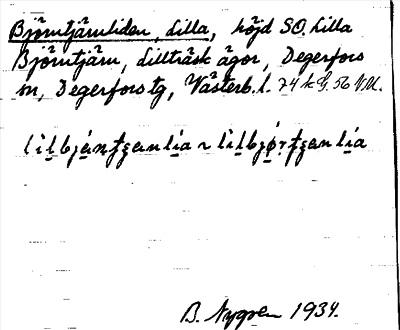 Björntjärnliden, Lilla, höjd SO. Lilla
Björntjärn, Lillträsk ägor, Degerfors
sn, Degerfors tg, Västerb. l. 74 k G. 56 V.U.
B. Nygren 1934.